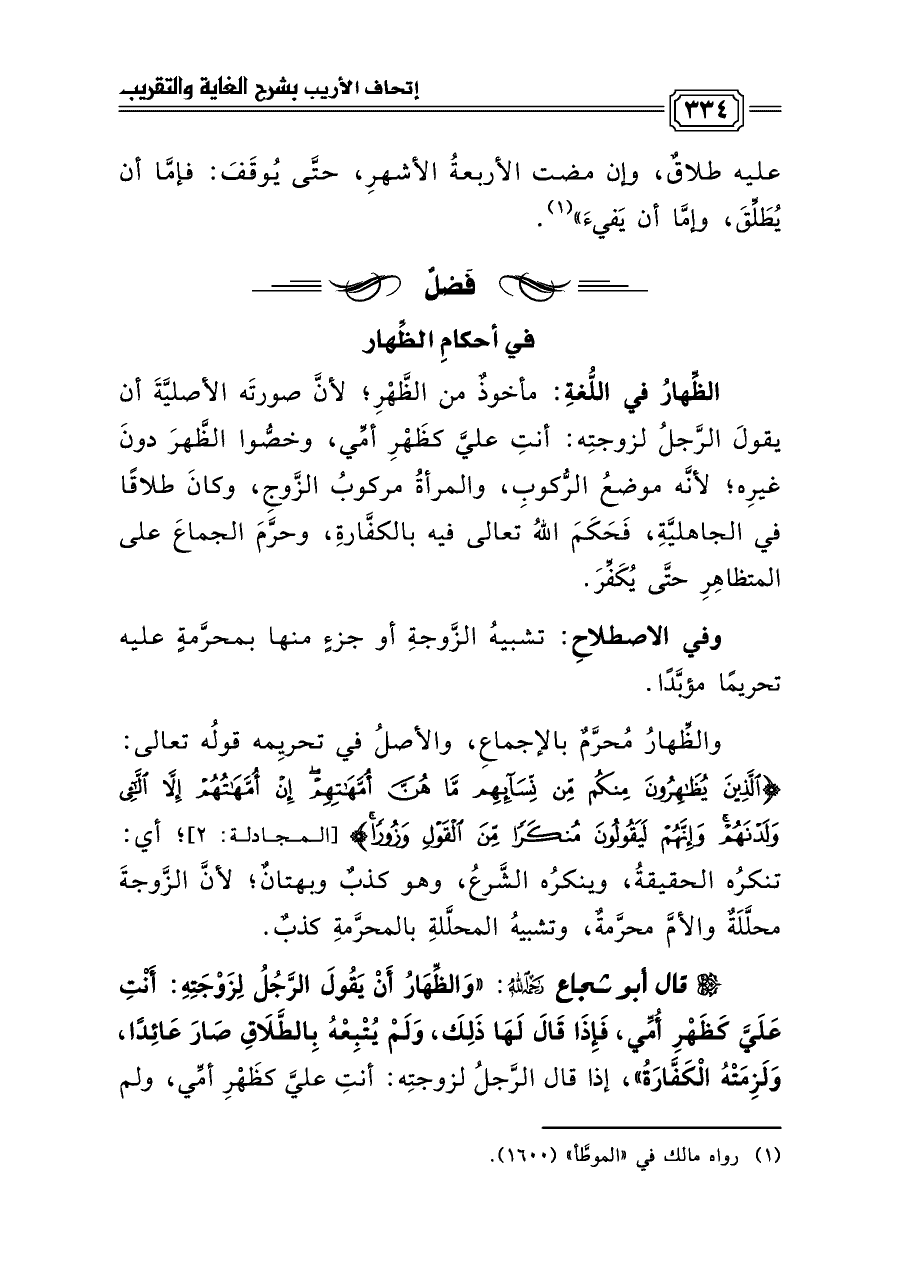 إتحاف الأريب بشرح الغاية والتقريب
٣٣٤
عليه طلاقٌ، وإن مضت الأربعةُ الأشهرِ، حتَّى يُوقَفَ: فإمَّا أن
يُطَلِّقَ، وإمَّا أن يَفيءَ»(١).
فَصْلٌ
في أحكامِ الظِّهار
الظِّهارُ في اللُّغةِ: مأخوذٌ من الظَّهْرِ؛ لأنَّ صورتَه الأصليَّةَ أن
يقولَ الرَّجلُ لزوجتِه: أنتِ عليَّ كظَهْرِ أمِّي، وخصُّوا الظَّهرَ دونَ
غيرِه؛ لأنَّه موضعُ الرُّكوبِ، والمرأةُ مركوبُ الزَّوجِ، وكانَ طلاقًا
في الجاهليَّةِ، فَحَكَمَ اللهُ تعالى فيه بالكفَّارةِ، وحرَّمَ الجماعَ على
المتظاهِرِ حتَّى يُكَفِّرَ.
وفي الاصطلاحِ: تشبيهُ الزَّوجةِ أو جزءٍ منها بمحرَّمةٍ عليه
تحريمًا مؤبَّدًا.
والظِّهارُ مُحرَّمٌ بالإجماعِ، والأصلُ في تحريمِه قولُه تعالى:
﴿ٱلَّذِينَ يُظَٰهِرُونَ مِنكُم مِّن نِّسَآئِهِم مَّا هُنَّ أُمَّهَٰتِهِمۡۖ إِنۡ أُمَّهَٰتُهُمۡ إِلَّا ٱلَّٰٓـِٔي
وَلَدۡنَهُمۡۚ وَإِنَّهُمۡ لَيَقُولُونَ مُنكَرٗا مِّنَ ٱلۡقَوۡلِ وَزُورٗاۚ﴾ [المجادلة: ٢]؛ أي:
تنكرُه الحقيقةُ، وينكرُه الشَّرعُ، وهو كذبٌ وبهتانٌ؛ لأنَّ الزَّوجةَ
محلَّلَةٌ والأمَّ محرَّمةٌ، وتشبيهُ المحلَّلةِ بالمحرَّمةِ كذبٌ.
قال أبو شجاع رحمه الله: «وَالظِّهَارُ أَنْ يَقُولَ الرَّجُلُ لِزَوْجَتِهِ: أَنْتِ
عَلَيَّ كَظَهْرِ أُمِّي، فَإِذَا قَالَ لَهَا ذَلِكَ، وَلَمْ يُتْبِعْهُ بِالطَّلَاقِ صَارَ عَائِدًا،
وَلَزِمَتْهُ الْكَفَّارَةُ»، إذا قال الرَّجلُ لزوجتِه: أنتِ عليَّ كظَهْرِ أمِّي، ولم
(١) رواه مالك في «الموطَّأ» (١٦٠٠).